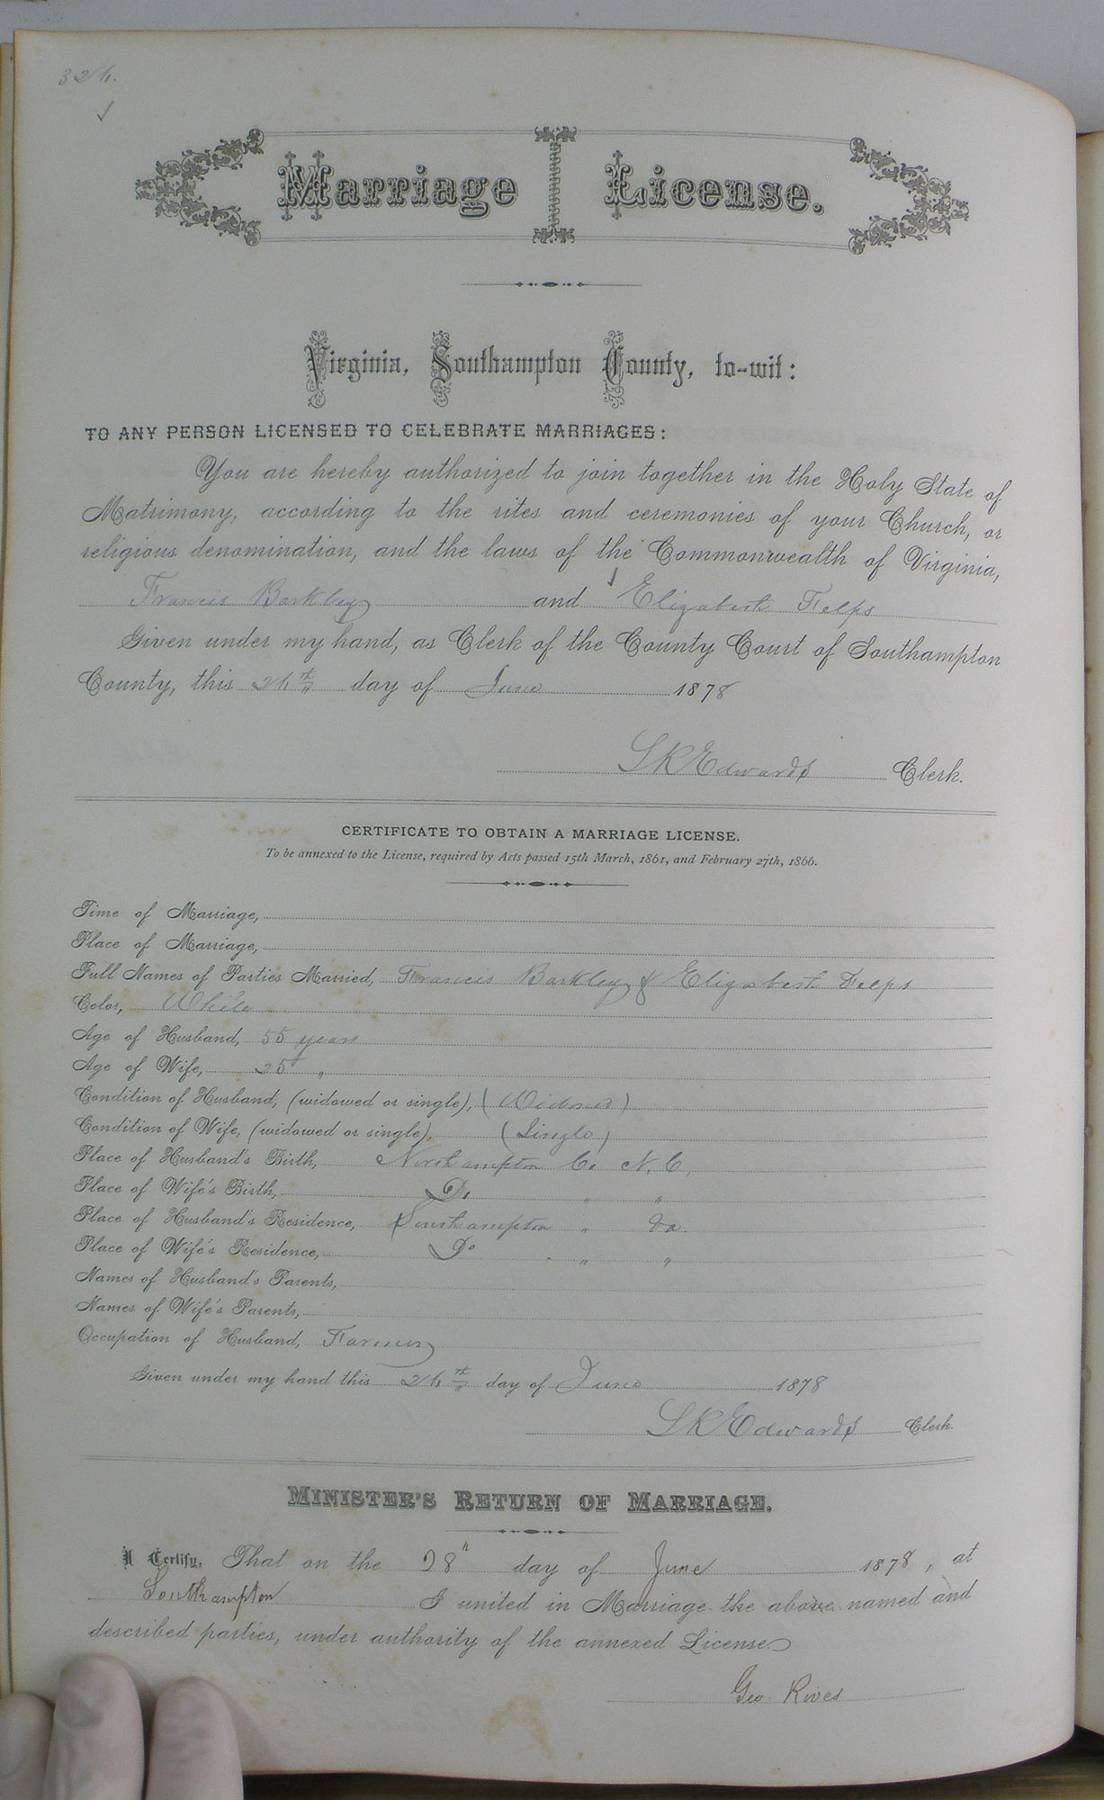 Marriage License.
Virginia, Southampton County, to-wit:
TO ANY PERSON LICENSED TO CELEBRATE MARRIAGES:
You are hereby authorized to join together in the Holy State of
Matrimony, according to the rites and ceremonies of your Church, or
religious denomination, and the laws of the Commonwealth of Virginia,
Francis Barkley and Elizabeth Felps
Given under my hand, as Clerk of the County Court of Southampton
County, this day of June 1878
S K Edwards Clerk.
CERTIFICATE TO OBTAIN A MARRIAGE LICENSE.
To be annexed to the License, required by Acts passed 15th March, 1861, and February 27th, 1866.
Time of Marriage,
Place of Marriage,
Full Names of Parties Married, Francis Barkley & Elizabeth Felps
Color, White
Age of Husband, 55 years
Age of Wife, 25 "
Condition of Husband, (widowed or single), (Widower)
Condition of Wife, (widowed or single), (Single)
Place of Husband's Birth, Northampton Co N. C.
Place of Wife's Birth, Do " "
Place of Husband's Residence, Southampton " Va.
Place of Wife's Residence, Do " "
Names of Husband's Parents,
Names of Wife's Parents,
Occupation of Husband, Farmer
Given under my hand this day of June 1878
S K Edwards Clerk.
MINISTER'S RETURN OF MARRIAGE.
I Certify, That on the 28" day of June 1878, at
Southampton I united in Marriage the above named and
described parties, under authority of the annexed License
Geo. Rives